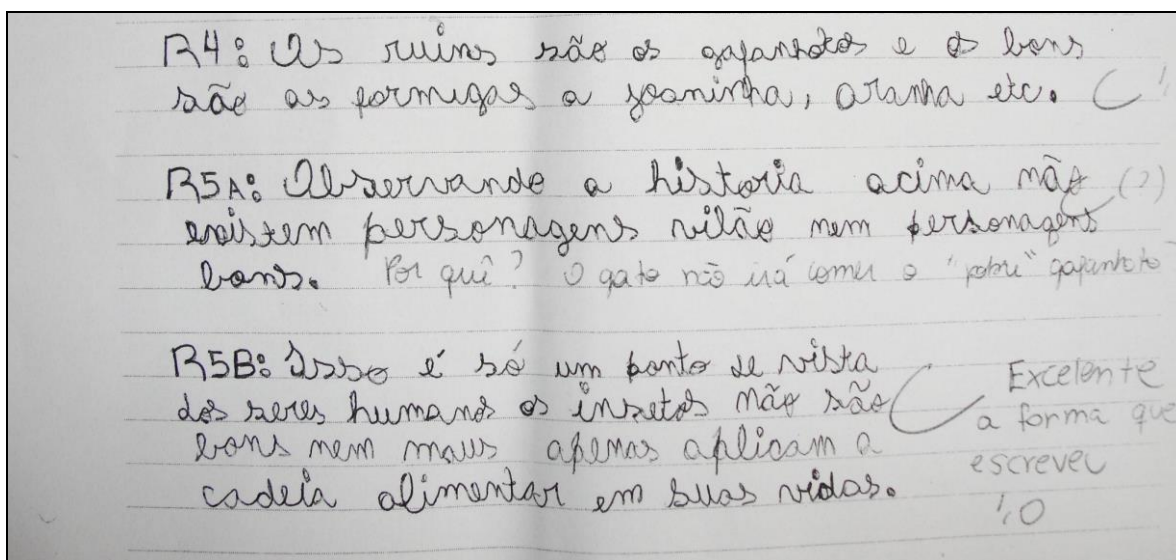 R4: Os ruins são os gafanhotos e os bons
são as formigas a joaninha, aranha etc. C
R5A: Observando a historia acima não (?)
existem personagens vilão nem personagens
bons. Por quê? O gato não irá comer o "pobre" gafanhoto
R5B: Isso é só um ponto de vista
dos seres humanos os insetos não são C Excelente
bons nem maus apenas aplicam a a forma que
cadeia alimentar em suas vidas. escreveu
1,0